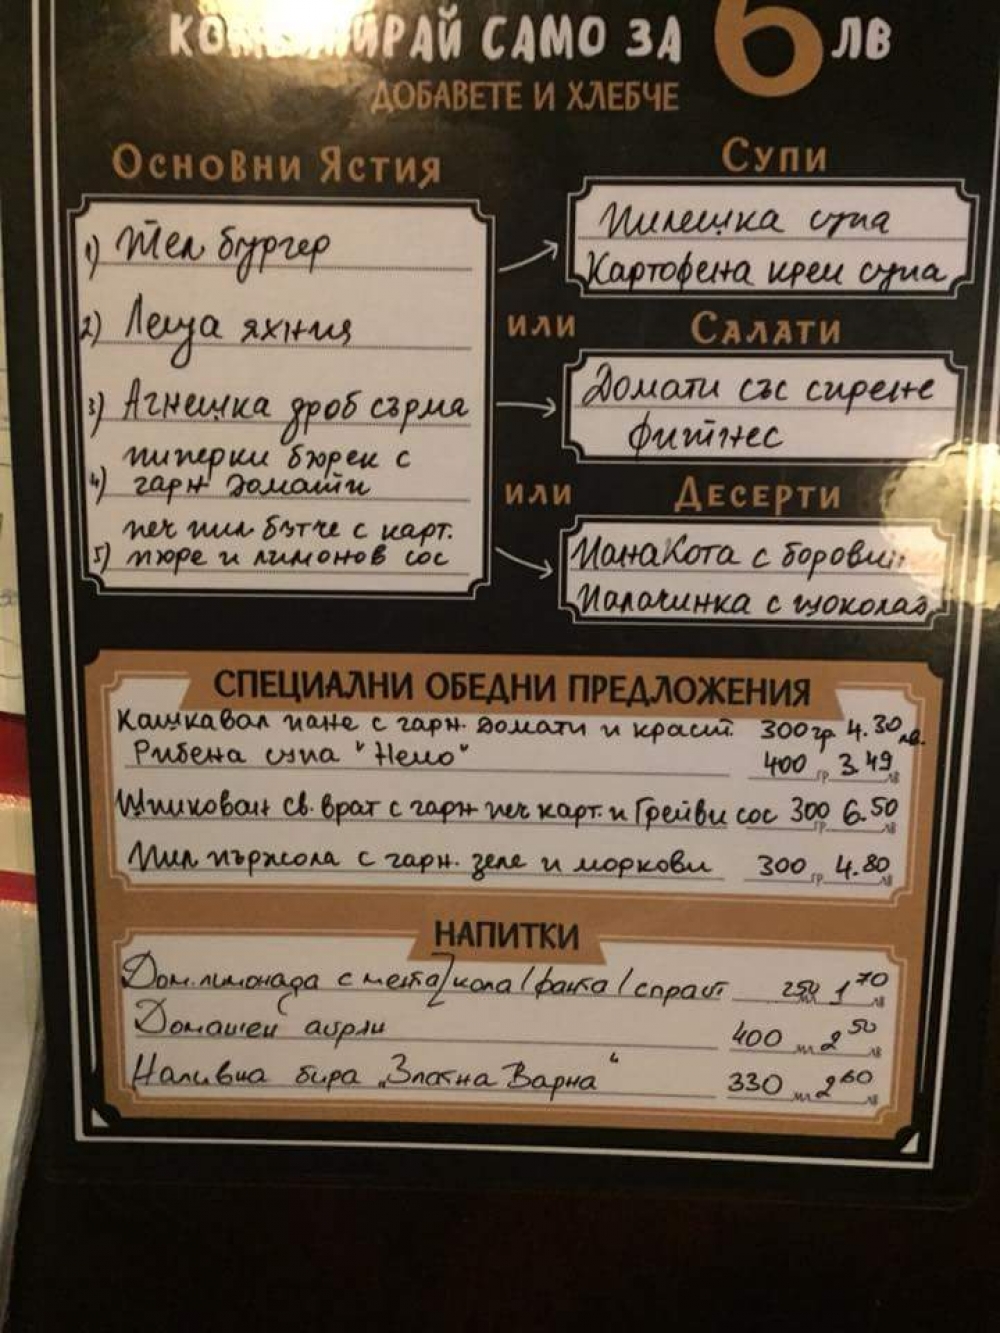 САМО ЗА 6 ЛВ
ДОБАВЕТЕ И ХЛЕБЧЕ
Основни Ястия
1) Тел бургер
2) Леща яхния
3) Агнешка дроб сърма
пиперки бюрек с
4) гарн домати
печ пил бутче с карт.
5) пюре и лимонов сос
Супи
Пилешка супа
Картофена крем супа
или
Салати
Домати със сирене
Фитнес
или
Десерти
ПанаКота с
Палачинка с шоколад
СПЕЦИАЛНИ ОБЕДНИ ПРЕДЛОЖЕНИЯ
Кашкавал пане с гарн. домати и краст. 300 гр. 4.30 лв.
Рибена супа "Немо" 400 гр 3.49 лв
Шпикован св. врат с гарн печ карт. и Грейви сос 300 гр 6.50 лв
Пил пържола с гарн. зеле и моркови 300 гр 4.80 лв
НАПИТКИ
Дом. лимонада с мента/кола/фанта/спрайт 250 мл 1 70 лв
Домашен айрян 400 мл 2 50 лв
Наливна бира „Златна Варна“ 330 мл 2 60 лв